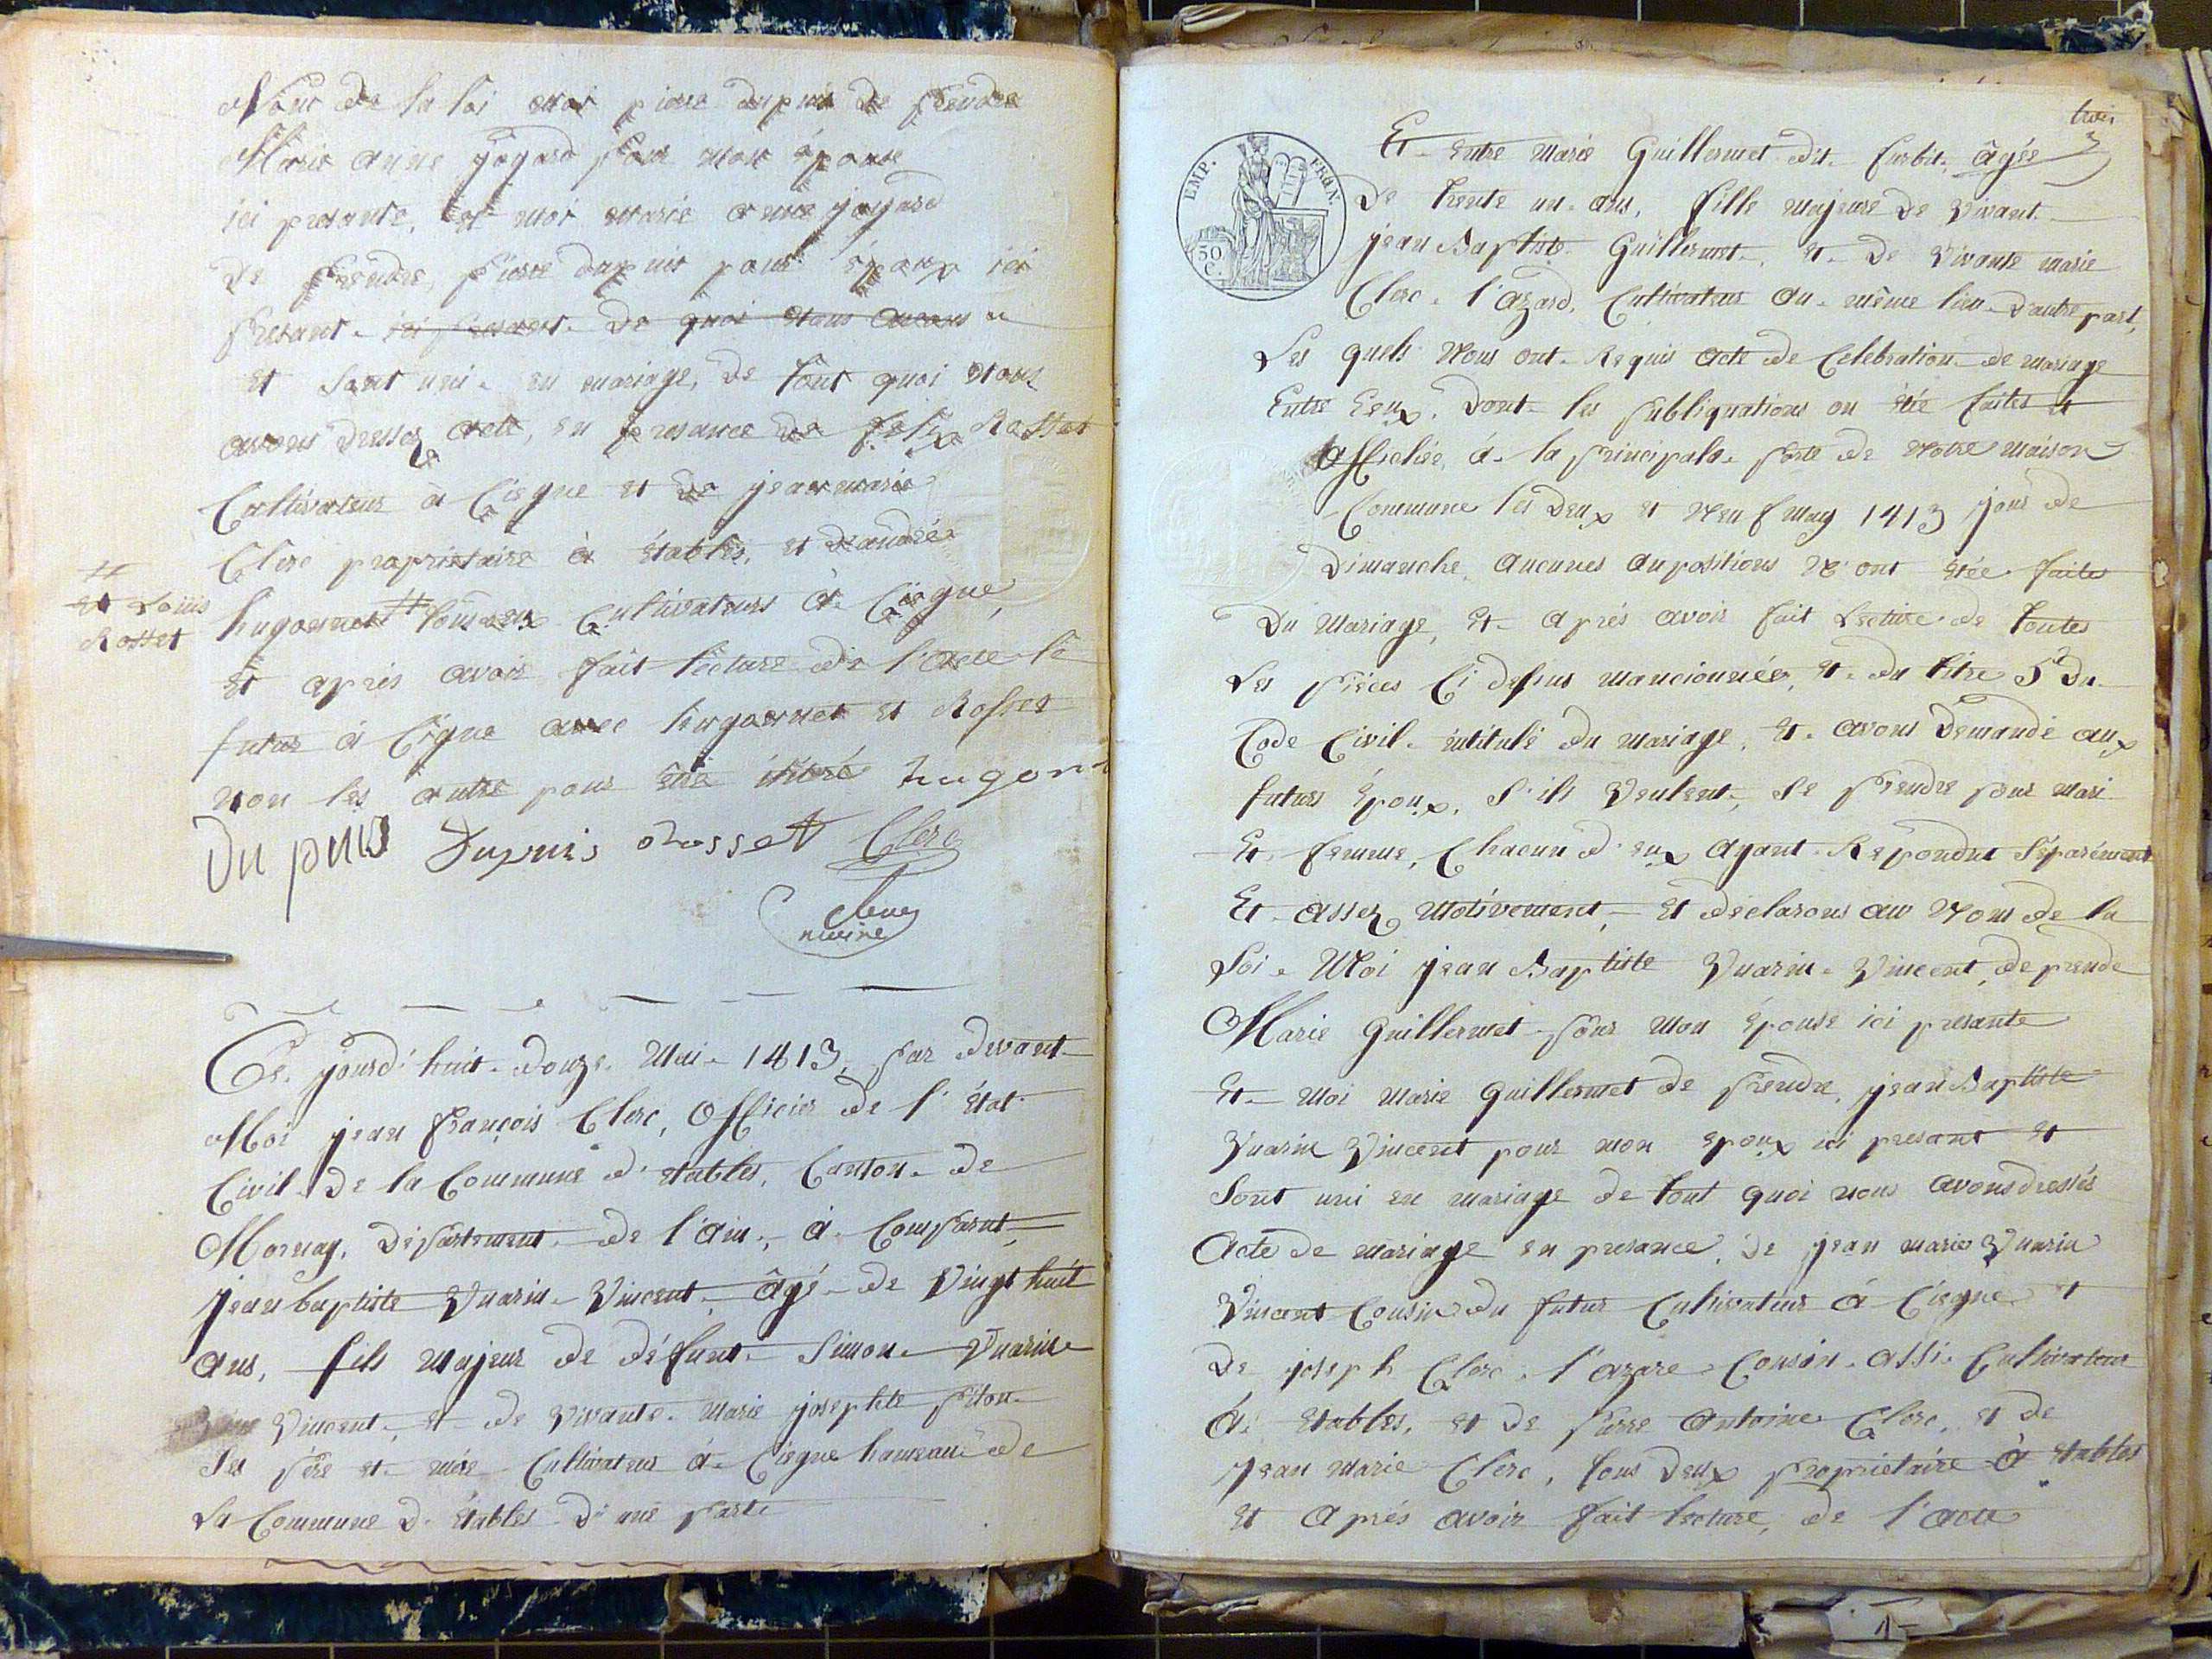 Nom de la loi moi piere dupuis de prendre
Marie anne joyard pour mon épouse
ici presante, et moi marie anne joyard
de prendre, pierre dupuis pour époux ici
presant. ici presant. de quoi nous avons
et sont uni. en mariage, de tout quoi nous
avons dressez acte, en presance de felix Rosset
Cultivateur à Ciegne et de jean marie
Clerc proprietaire à étables, et d'andrée
hugonnet # tous deux Cultivateurs à Ciegne,
# et Louis
Rosset
Et après avoir fait lecture de l'acte le
futur à signe avec hugonnet et Rosset
non les autre pour être
Dupuis Dupuis Rosset Clerc
Clerc
maire
Ce jourd'huit. douze. Mai. 1813, par devant
Moi jean françois Clerc, Officier de l'état
Civil de la Commune d'étables, Canton. de
Mornay, Département. de l'ain, à Comparut,
jean baptiste Vuarin. Vincent, âgé. de Vingt huit
ans, fils majeur de défunt. Simon. Vuarin
Vincent, et de vivante. Marie josephte piton.
Ses père et. mère Cultivateur à. Ciegne hameau de
La Commune d'étables d'une part.
trois
3
Et. Entre Marie Guillermet dit. Curbit, âgée
de trente un. ans, fille majeure de vivant
jean Baptiste Guillermet, et. de vivante marie
Clerc. l'azard, Cultivateur au. même lieu. d'autre part,
EMP. FRAN.
50
C.
Les quels Nous ont. Requis acte de Celebration de mariage
Entre Eeux, dont. les publiquations on étée faites et
affichée, à. la principale. porte de notre maison
Commune les deux et neuf may 1813 jour de
Dimanche, aucunes aupositions n'ont étée faites
du Mariage, et. après avoir fait Lecture de toutes
Les pièces Ci dessus mancionnées, et. du titre 5e du
Code Civil. intitulé du mariage, et. avons demandé aux
futurs époux, s'ils veulent, se prendre pour mari
Et. femme, Chacun d'eux ayant. Répondut Séparément
Et. assez Motivement, et déclarons au Nom de la
Loi. Moi jean Baptiste Vuarin. Vincent, de prende
Marie Guillermet pour mon épouse ici presante
Et. Moi Marie Guillermet de prendre, jean Baptiste
Vuarin Vincent pour mon époux ici presant et
Sont uni en mariage de tout quoi nous avons dressés
Acte de mariage en presance, de jean marie Vuarin
Vincent Cousin du futur Cultivateur à Ciegne et
De joseph Clerc. l'azare Cousin. assi. Cultivateur
à. étables, et de pierre antoine Clerc, et de
jean Marie Clerc, tous deux proprietaire à étables
et après avoir fait lecture, de l'acte
1-